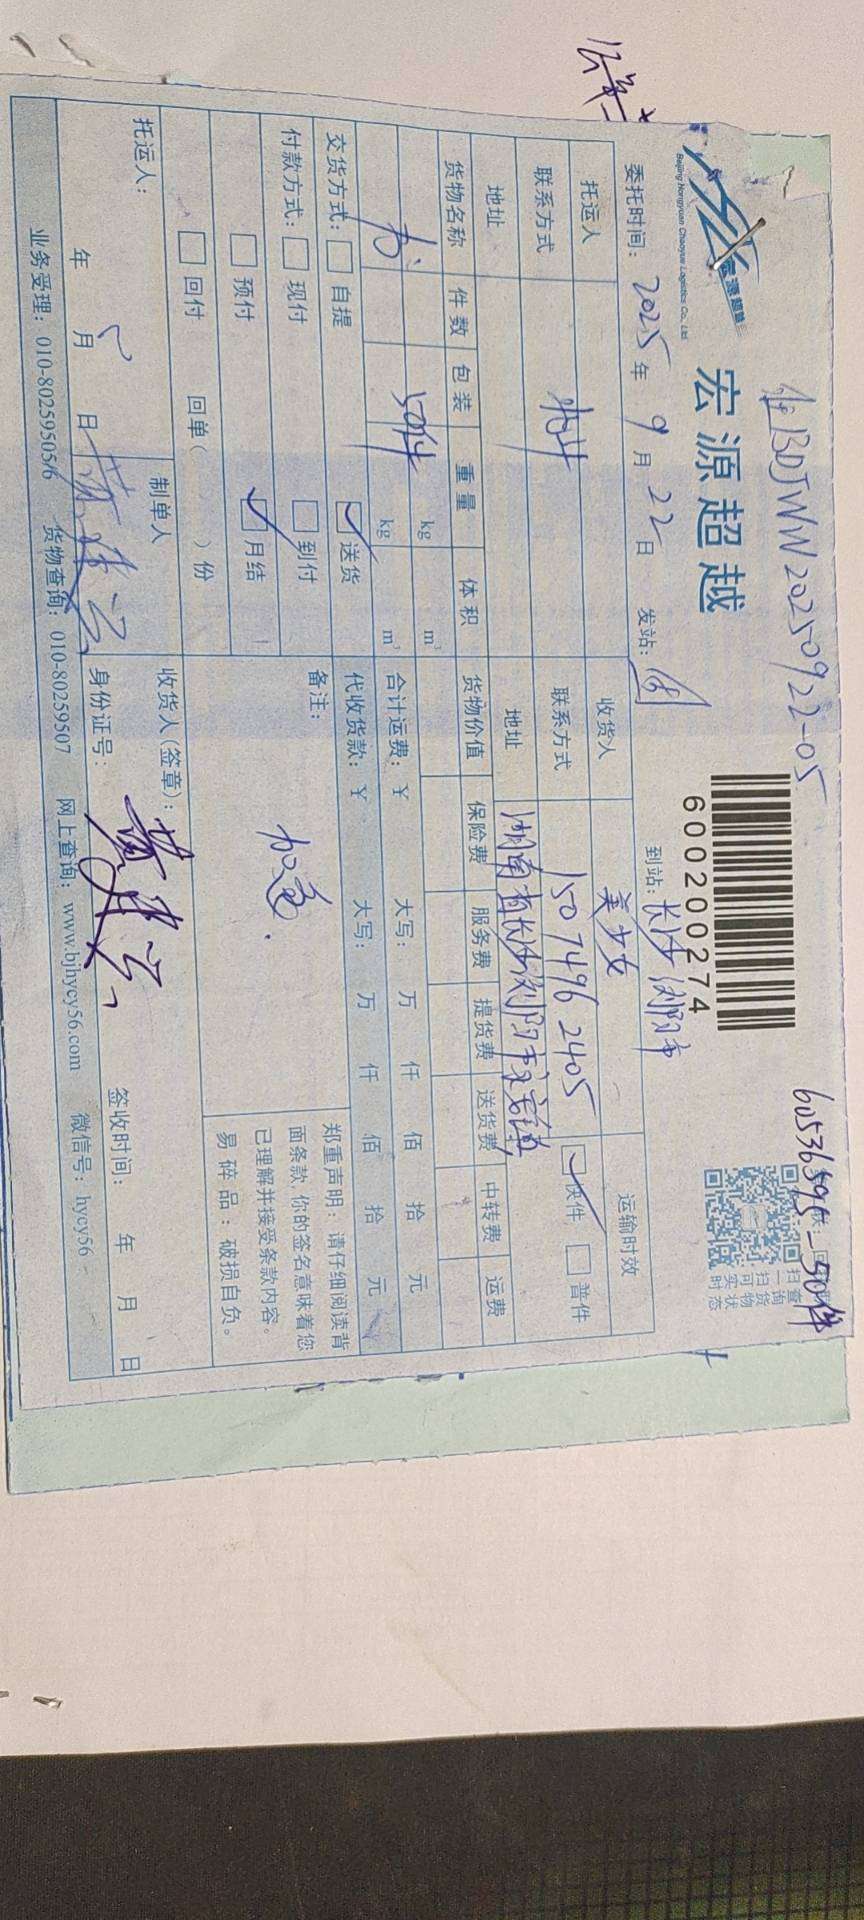 BDJWW20250922-05
60536595-50件
宏源超越
Beijing Hongyuan Chaoyue Logistics Co., Ltd
6000200274
扫一扫可实时
查询货物状态
委托时间: 2025年 9月 22日 发站: 到站: 长沙浏阳市
托运人 收货人 美少女 运输时效
联系方式 联系方式 150 7496 2405 ☑快件 □普件
地址 地址 湖南省长沙浏阳市
货物名称 件数 包装 重量 体积 货物价值 保险费 服务费 提货费 送货费 中转费 运费
书 50件 kg m³
kg m³ 合计运费: ¥ 大写: 万 仟 佰 拾 元
交货方式: □自提 ☑送货 代收货款: ¥ 大写: 万 仟 佰 拾 元
付款方式: □现付 □到付 备注: 加急.
□预付 ☑月结
□回付 回单( )份
郑重声明:请仔细阅读背
面条款,你的签名意味着您
已理解并接受条款内容。
易碎品:破损自负。
托运人: 制单人 收货人(签章):
年 月 日 身份证号: 签收时间: 年 月 日
业务受理: 010-80259505/6 货物查询: 010-80259507 网上查询: www.bjhycy56.com 微信号: hycy56